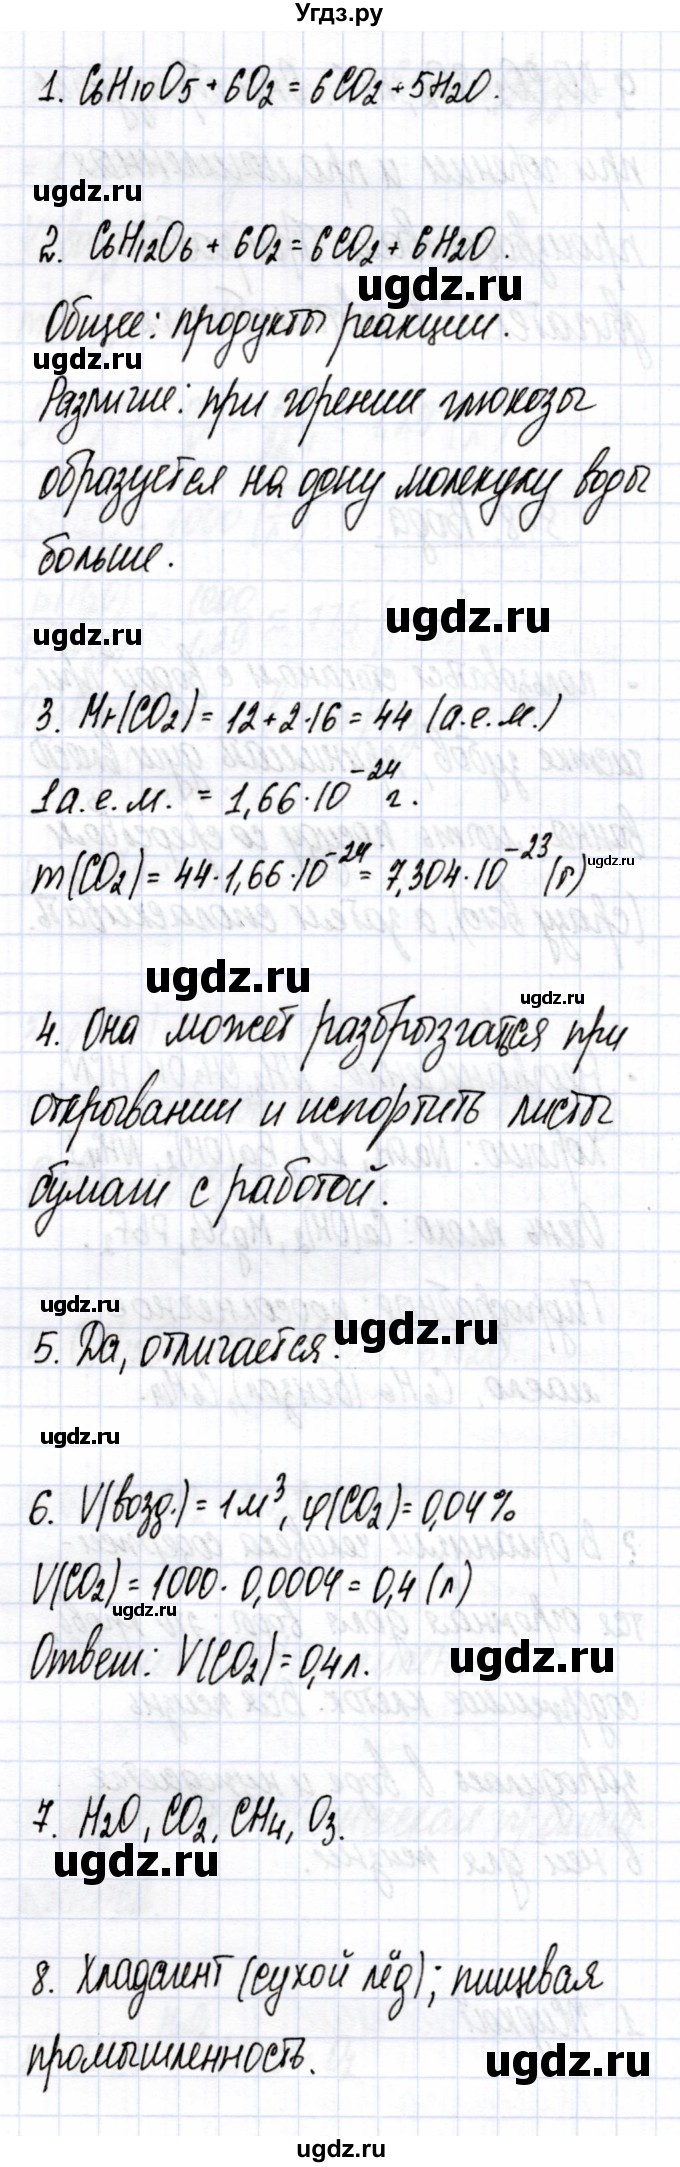 Угдз.ру
1. C6H10O5 + 6O2 = 6CO2 + 5H2O.
ugdz.ru
2. C6H12O6 + 6O2 = 6CO2 + 6H2O.
ugdz.ru
Общее: продукты реакции.
ugdz.ru
Различие: при горении глюкозы
образуется на одну молекулу воды
больше.
ugdz.ru
ugdz.ru
3. Mr(CO2) = 12 + 2·16 = 44 (а.е.м.)
1 а.е.м. = 1,66·10⁻²⁴ г.
m(CO2) = 44·1,66·10⁻²⁴ = 7,304·10⁻²³ (г)
ugdz.ru
ugdz.ru
ugdz.ru
4. Она может разбрызгаться при
открывании и испортить листы
бумаги с работой.
ugdz.ru
ugdz.ru
5. Да, отличается.
ugdz.ru
6. V(возд.) = 1 м³, φ(CO2) = 0,04%
V(CO2) = 1000·0,0004 = 0,4 (л)
ugdz.ru
Ответ: V(CO2) = 0,4 л.
ugdz.ru
7. H2O, CO2, CH4, O3.
ugdz.ru
8. Хладагент (сухой лёд); пищевая
промышленность.
ugdz.ru
ugdz.ru